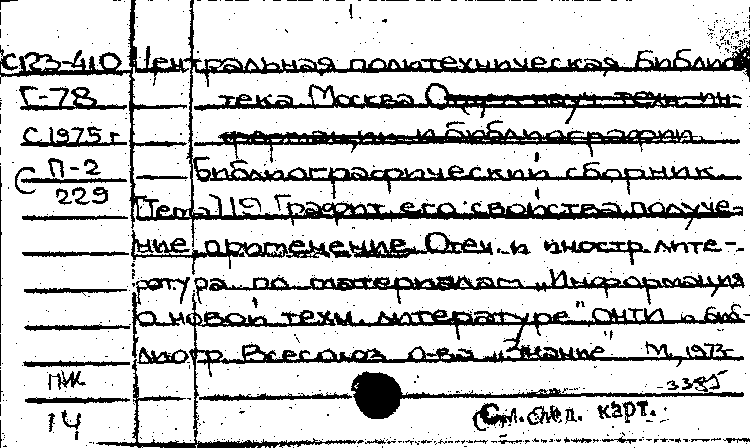 СРЗ-410 Центральная политехническая библио
Г-78 тека Москва Отдел науч. техн. ин-
С 1975 г формации и библиографии.
П-2 Библиографический сборник.
229 [Тема] 19. Графит, его свойства, получе-
ние, применение. Отеч. и иностр. лите-
ратура по материалам „Информация
о новой техн. литературе", ОНТИ и биб-
лиогр. Всесоюз о-ва „Знание" М, 1973
ПИК
14 См. след. карт.